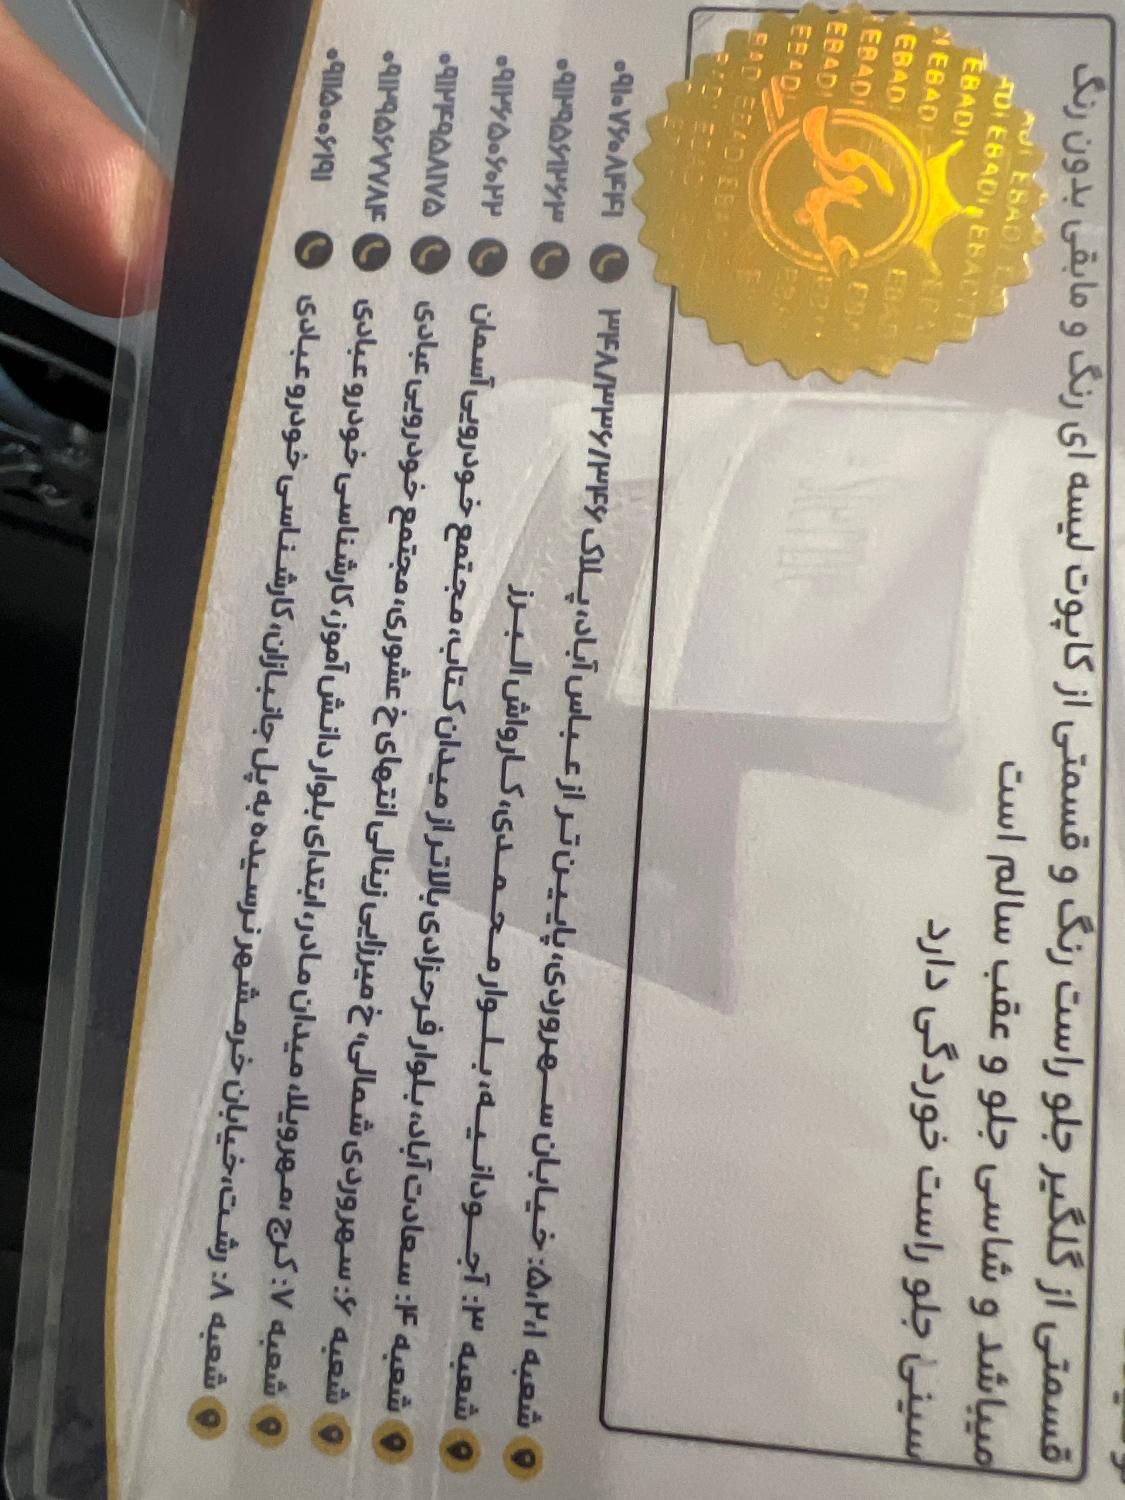 قسمتی از گلگیر جلو راست رنگ و قسمتی از کاپوت لیسه ای رنگ و مابقی بدون رنگ
میباشد و شاسی جلو و عقب سالم است
سینی جلو راست خوردگی دارد
EBADI EBADI EBADI
عبادی
شعبه ۵،۲،۱: خیابان سهروردی، پایین تر از عباس آباد، پلاک ۳۴۸/۳۳۶/۳۴۶
۰۹۱۰۷۶۰۸۴۴۱
شعبه ۳: آجودانیه، بلوار محمدی، کارواش البرز
۰۹۱۲۹۵۶۲۳۶۳
شعبه ۴: سعادت آباد، بلوار فرحزادی بالاتر از میدان کتاب، مجتمع خودرویی آسمان
۰۹۱۲۶۵۰۰۶۰۲۲
شعبه ۶: سهروردی شمالی، خ میرزایی زینالی انتهای خ عشوری، مجتمع خودرویی عبادی
۰۹۱۲۴۹۵۸۱۷۵
شعبه ۷: کرج، مهرویلا، میدان مادر، ابتدای بلوار دانش آموز، کارشناسی خودرو عبادی
۰۹۱۲۹۵۶۷۷۸۴
شعبه ۸: رشت، خیابان خرمشهر نرسیده به پل جانبازان، کارشناسی خودرو عبادی
۰۹۱۱۵۰۰۶۱۹۱